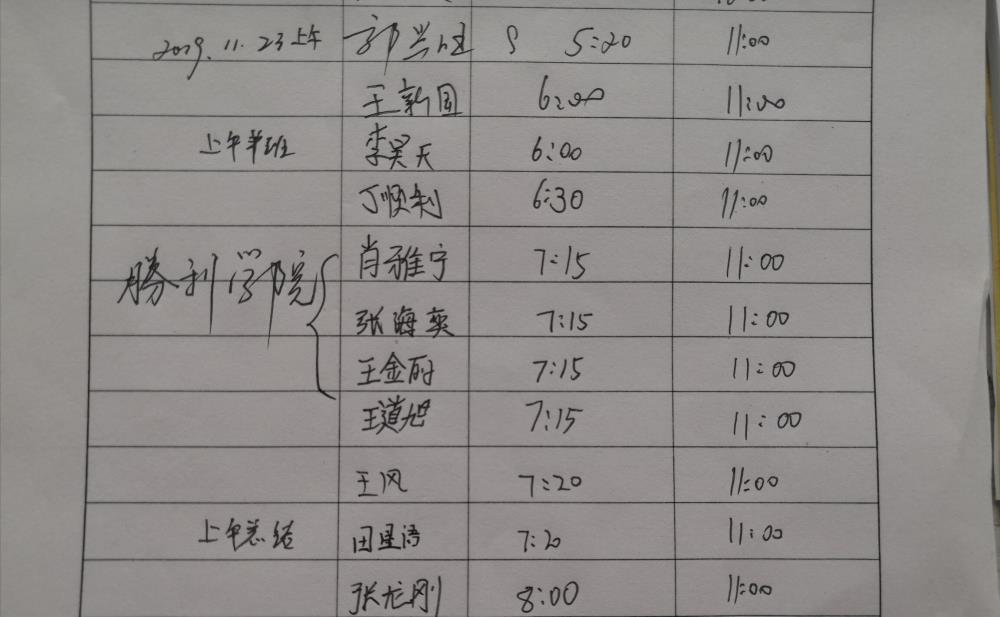 2019.11.23上午 郭兴旺 5:20 11:00
王新国 6:00 11:00
上午半班 李昊天 6:00 11:00
丁顺利 6:30 11:00
勝利学院 肖雅宁 7:15 11:00
张海奕 7:15 11:00
王金 7:15 11:00
王道旭 7:15 11:00
王风 7:20 11:00
上午总结 田星语 7:20 11:00
张龙刚 8:00 11:00